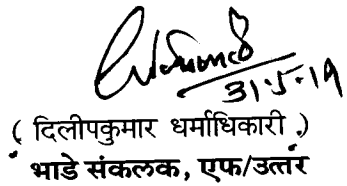 31.5.19
( दिलीपकुमार धर्माधिकारी .)
भाडे संकलक, एफ/उत्तर